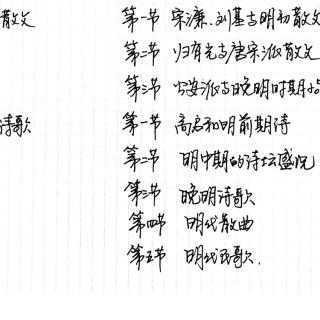 散文 第一节 宋濂、刘基与明初散文
第二节 归有光与唐宋派散文
第三节 公安派与晚明时期小
诗歌 第一节 高启和明前期诗
第二节 明中期的诗坛盛况
第三节 晚明诗歌
第四节 明代散曲
第五节 明代民歌.